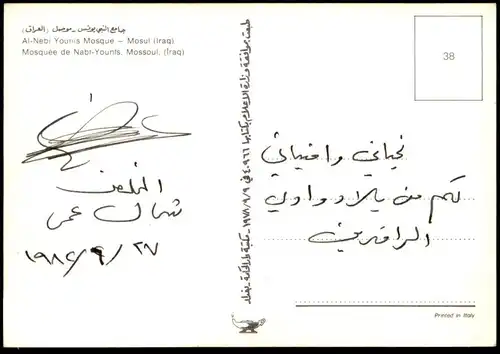 جامع النبي يونس - موصل (العراق)
Al-Nebi Younis Mosque – Mosul (Iraq)
Mosquée de Nabi-Younis. Mossoul. (Iraq)
المخلص
شمال عمر
١٩٨٤/٩/٢٧
طبعت بموافقة وزارة الاعلام بكتابها ٤٠٩٦٦ في ١٩٧٨/٩/٩ - مكتبة
بغداد
38
تحياتي وامنياتي
لكم من بلاد وادي
الرافدين
Printed in Italy